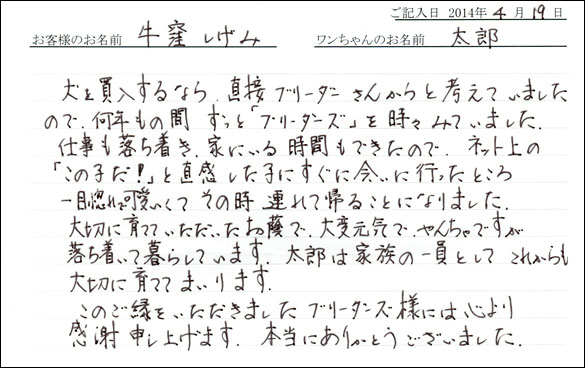 ご記入日 2014年 4月 19日
お客様のお名前 牛窪 しげみ ワンちゃんのお名前 太郎
犬を買入するなら、直接ブリーダーさんからと考えていました
ので、何年もの間 ずっと「ブリーダーズ」を時々みていました。
仕事も落ち着き、家にいる時間もできたので、ネット上の
「この子だ!」と直感した子にすぐに会いに行ったところ
一目惚れで可愛いくて その時 連れて帰ることになりました。
大切に育てていただいたお蔭で、大変元気で、やんちゃですが
落ち着いて暮らしています。太郎は家族の一員として これからも
大切に育ててまいります。
このご縁をいただきました ブリーダーズ様には心より
感謝申し上げます。本当にありがとうございました。